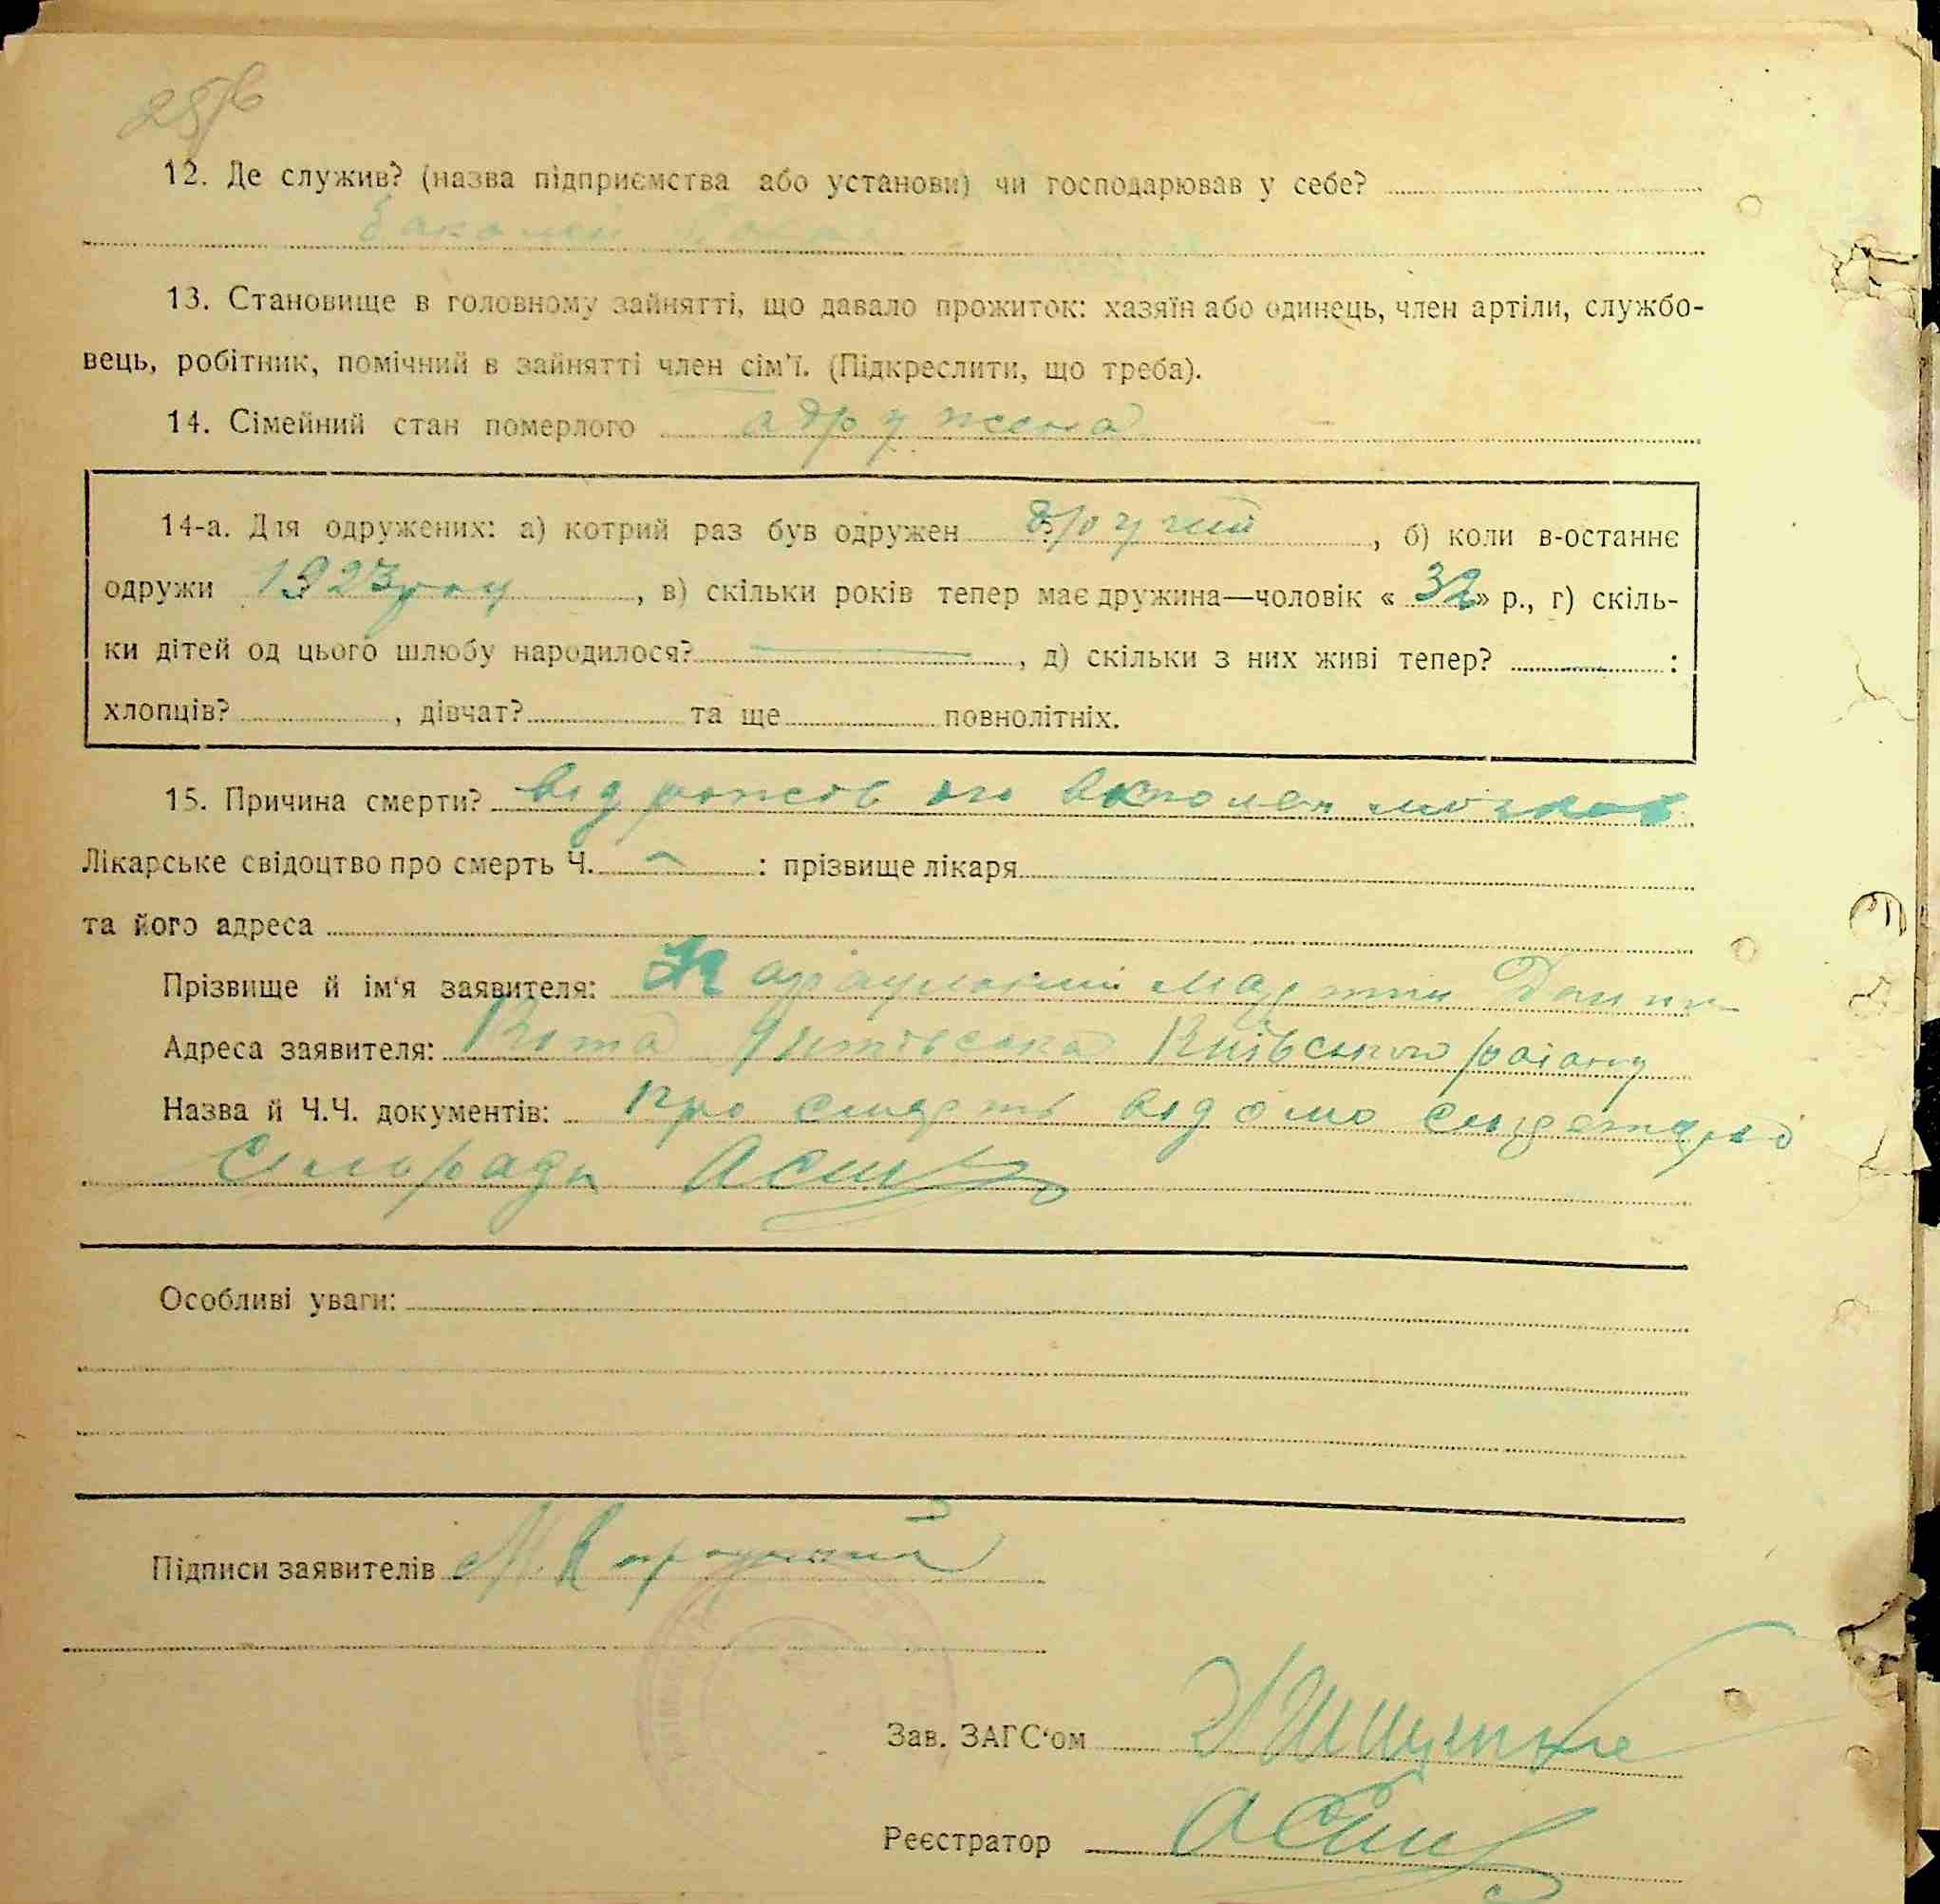 12. Де служив? (назва підприємства або установи) чи господарював у себе?
13. Становище в головному зайнятті, що давало прожиток: хазяїн або одинець, член артіли, службо-
вець, робітник, помічний в зайнятті член сім'ї. (Підкреслити, що треба).
14. Сімейний стан померлого одружена
14-а. Для одружених: а) котрий раз був одружен другий, б) коли в-останнє
одружи 1923 року, в) скільки років тепер має дружина—чоловік «32» р., г) скіль-
ки дітей од цього шлюбу народилося? —, д) скільки з них живі тепер? — :
хлопців? , дівчат? та ще повнолітніх.
15. Причина смерти? від
Лікарське свідоцтво про смерть Ч. — : прізвище лікаря
та його адреса
Прізвище й ім'я заявителя: Мартин
Адреса заявителя: Київського району
Назва й Ч.Ч. документів: Про смерть відомо секретарю
сільради
Особливі уваги:
Підписи заявителів
Зав. ЗАГС'ом
Реєстратор